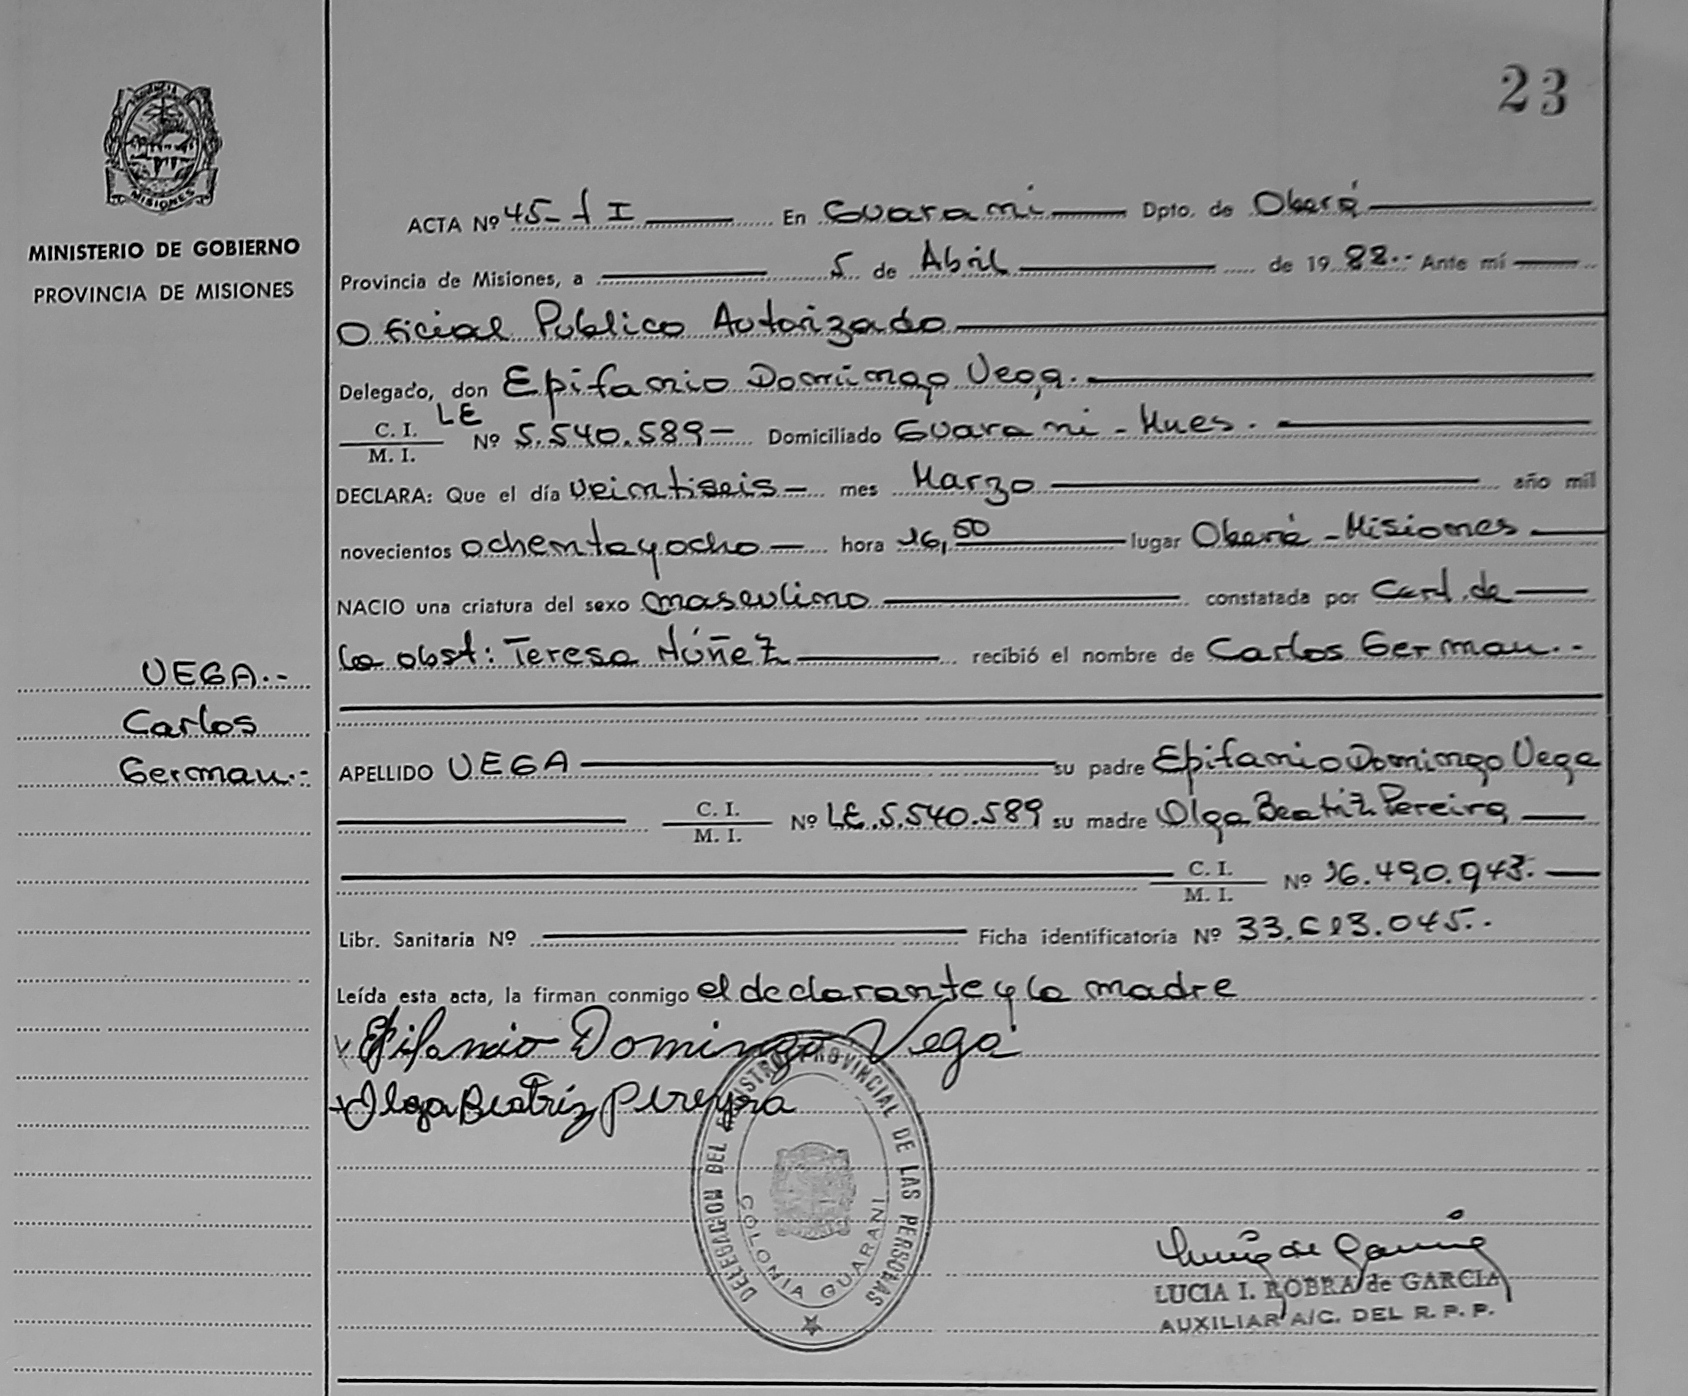 23
MISIONES
MINISTERIO DE GOBIERNO
PROVINCIA DE MISIONES
ACTA Nº 45- I En Guarani Dpto. de Oberá
Provincia de Misiones, a 5 de Abril de 19 88.- Ante mí
Oficial Publico Autorizado
Delegado, don Epifanio Domingo Vega.
LE
C. I.
M. I.
Nº 5.540.589- Domiciliado Guarani - Mnes.
DECLARA: Que el día veintiseis - mes Marzo año mil
novecientos ochentayocho - hora 16,50 lugar Oberá - Misiones
NACIO una criatura del sexo masculino constatada por Cert. de
la obst: Teresa Núñez recibió el nombre de Carlos German.-
VEGA.-
Carlos
German.-
APELLIDO VEGA su padre Epifanio Domingo Vega
C. I.
M. I.
Nº LE.5.540.589 su madre Olga Beatriz Pereira
C. I.
M. I.
Nº 16.490.943.-
Libr. Sanitaria Nº Ficha identificatoria Nº 33. 045.-
Leída esta acta, la firman conmigo el declarante y la madre
Epifanio Domingo Vega
Olga Beatriz Pereyra
DELEGACION DEL REGISTRO PROVINCIAL DE LAS PERSONAS
COLONIA GUARANI
Lucia de Garcia
LUCIA I. ROBRA de GARCIA
AUXILIAR A/C. DEL R. P. P.